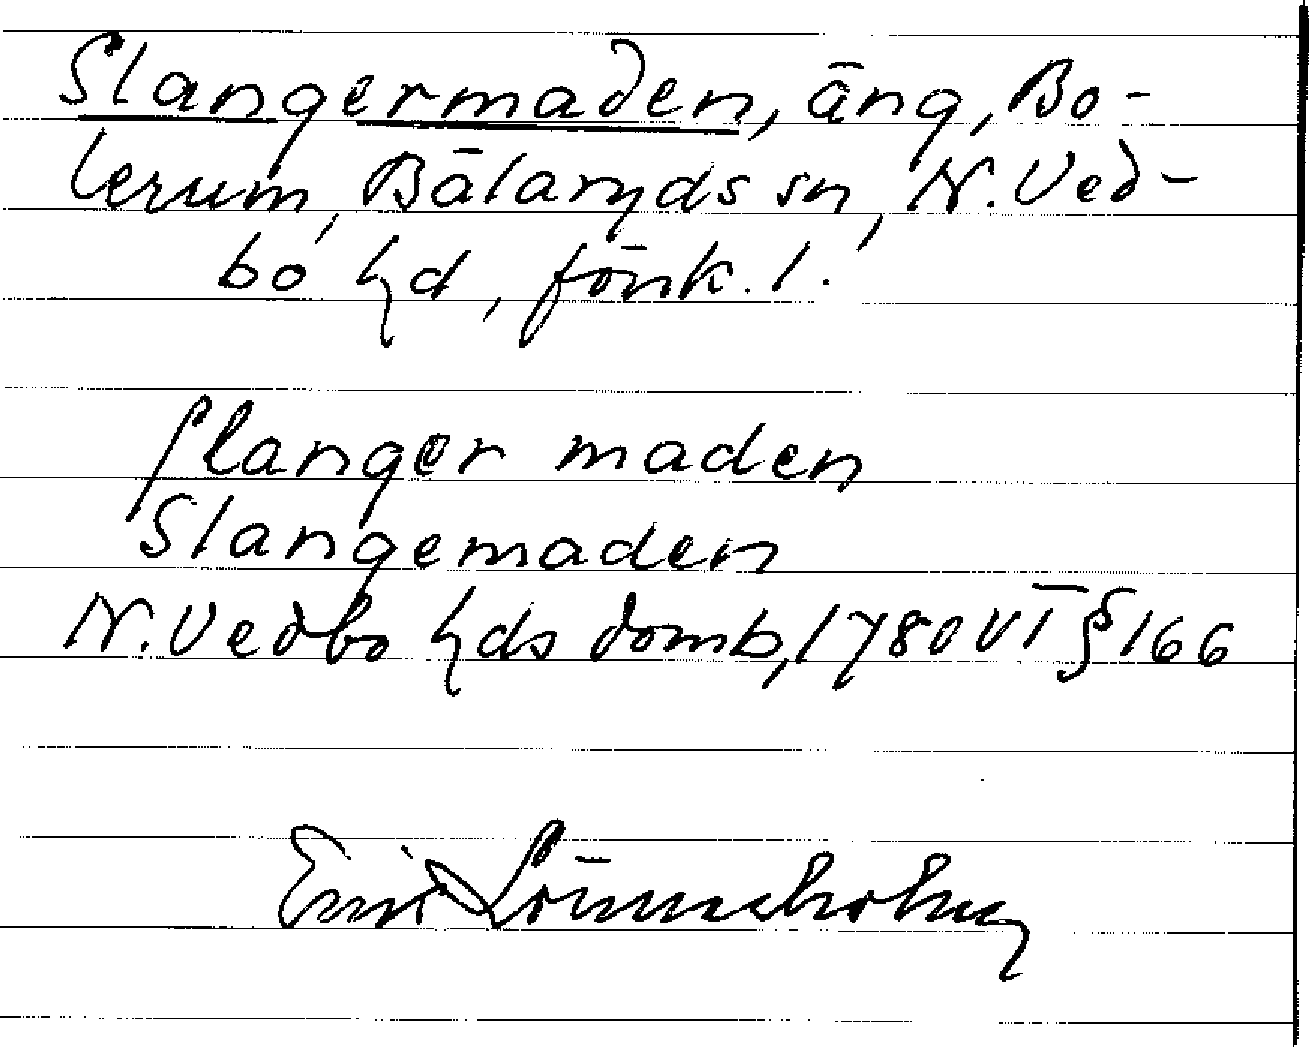 Slangermaden, äng, Bo-
lerum, Bälaryds sn, N. Ved-
bo hd, försk. l.
slanger maden
Slangemaden
N. Vedbo hds domb, 1780 VT § 166
Emil Lönnerholm